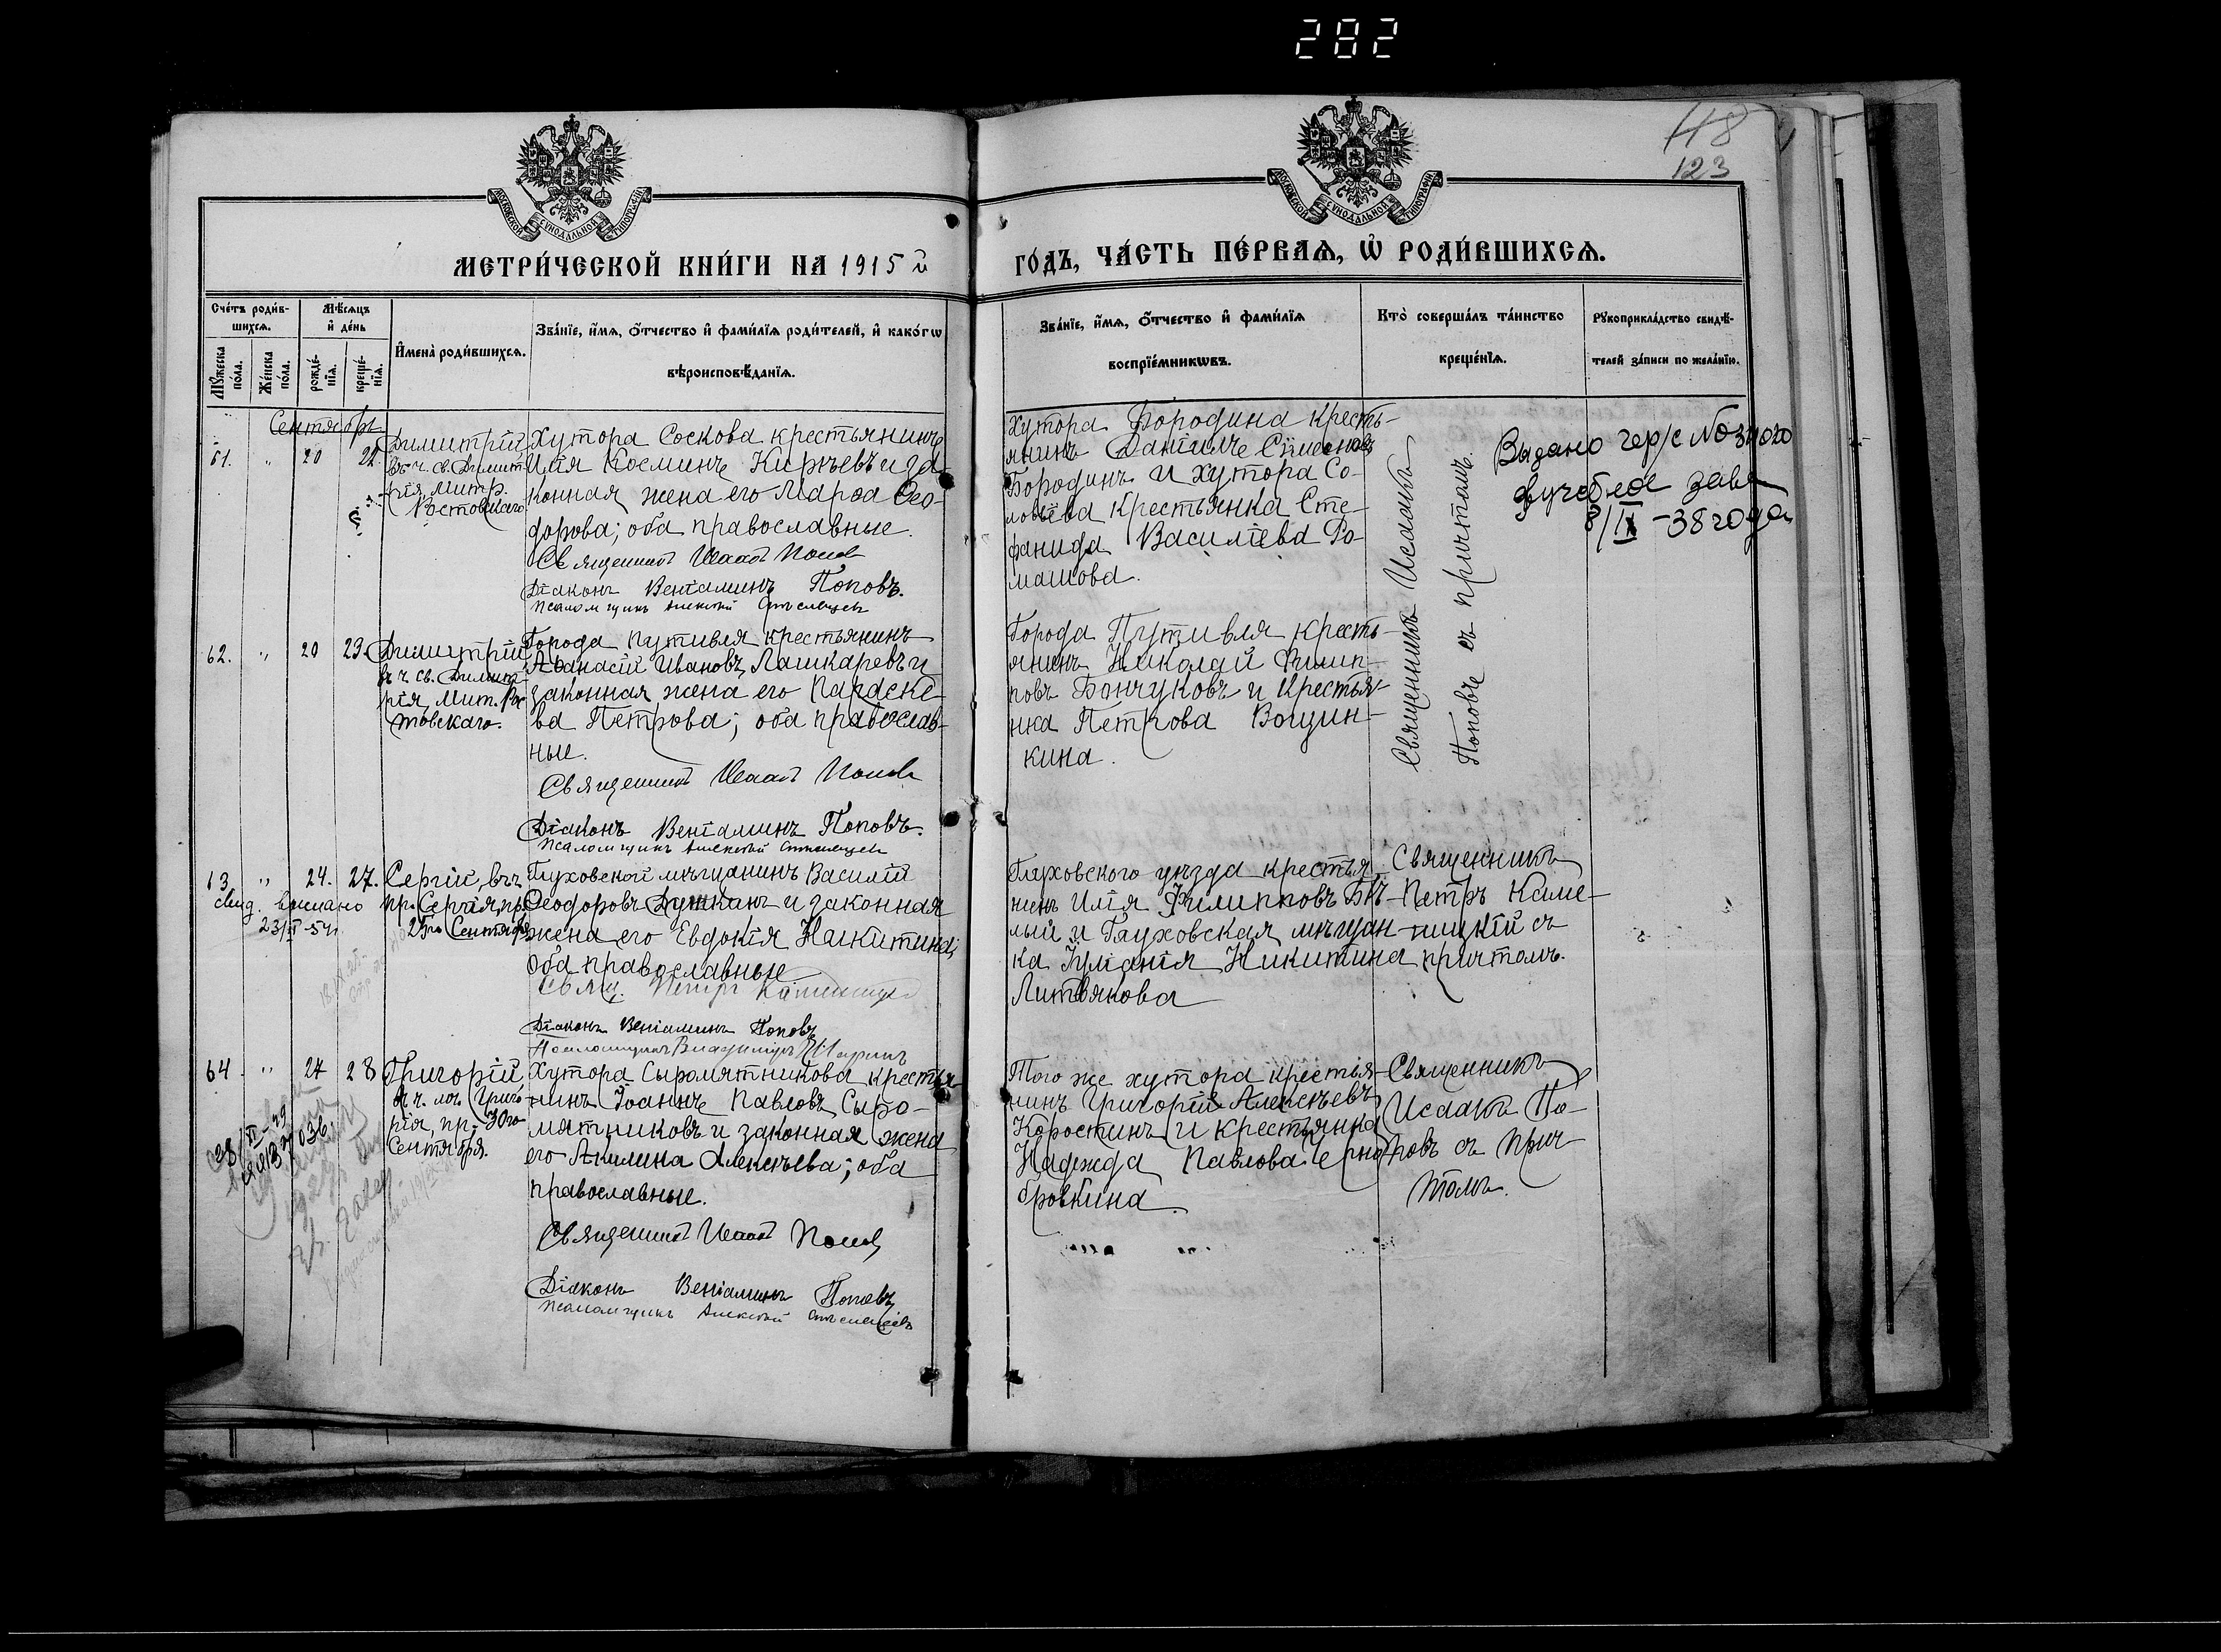 282
48
123
МОСКОВСКОЙ СУНОДАЛЬНОЙ ТИПОГРАФІИ
МОСКОВСКОЙ СУНОДАЛЬНОЙ ТИПОГРАФІИ
МЕТРИ́ЧЕСКОЙ КНИ́ГИ НА 1915 й
ГО́ДЪ, ЧА́СТЬ ПЕ́РВАѦ, Ѡ҆ РОДИ́ВШИХСѦ.
Сче́тъ роди́в-
шихсѧ.
Мѣ́сѧцъ
и҆ де́нь
Мꙋ́жеска по́ла.
Же́нска по́ла.
рожде́-
нїѧ.
креще́-
нїѧ.
И҆мена̀ роди́вшихсѧ.
Зва́нїе, и҆́мѧ, ѻ҆́тчество и҆ фами́лїѧ роди́телей, и҆ како́гѡ
вѣроисповѣ́данїѧ.
Зва́нїе, и҆́мѧ, ѻ҆́тчество и҆ фами́лїѧ
воспрїе́мникѡвъ.
Кто̀ соверша́лъ та́инство
креще́нїѧ.
Рꙋкоприкла́дство свидѣ́-
телей за́писи по жела́нїю.
Сентябрь
61. " 20 22.
Димитрій,
въ ч. св. Димит-
рія, Митр.
Ростовскаго.
Хутора Соскова крестьянинъ
Илія Косминъ Кирѣевъ и за-
конная жена его Марѳа Ѳео-
дорова; оба православные.
Священникъ Исаакъ Поповъ
Діаконъ Веніаминъ Поповъ.
Псаломщикъ Алексій
Хутора Бородина кресть-
янинъ Даніилъ Симеоновъ
Бородинъ и хутора Со-
ловьева крестьянка Сте-
фанида Василіева Ро-
машова.
Священникъ Исаакъ
Поповъ съ причтомъ.
Выдано
8/IX -38 года
62. " 20 23.
Димитрій,
въ ч. св. Димит-
рія, Мит. Ро-
стовскаго.
Города Путивля крестьянинъ
Аѳанасій Ивановъ Лашкаревъ и
законная жена его Параске-
ва Петрова; оба православ-
ные.
Священникъ Исаакъ Поповъ
Діаконъ Веніаминъ Поповъ.
Псаломщикъ Алексій
Города Путивля кресть-
янинъ Николай Филип-
повъ Бончуковъ и крестья-
нка Петрова Вощин-
кина.
63 " 24. 27.
свид. выслано
Сергій, въ ч.
пр. Сергія, пр.
25го Сентября
Глуховской мѣщанинъ Василій
Ѳеодоровъ и законная
жена его Евдокія Никитина;
оба православные
Свящ. Петръ
Діаконъ Веніаминъ Поповъ
Псаломщикъ Владиміръ
Глуховского уѣзда крестья-
нинъ Илія Филипповъ Бѣ-
лый и Глуховская мѣщан-
ка Іуліанія Никитина
Литвякова
Священникъ
Петръ Каме-
ницкій съ
причтомъ.
64 " 27 28
Григорій,
въ ч. мч. Григо-
рія, пр. 30го
Сентября.
Хутора Сыромятникова крестья-
нинъ Іоаннъ Павловъ Сыро-
мятниковъ и законная жена
его Акилина Алексѣева; оба
православные.
Священникъ Исаакъ Поповъ
Діаконъ Веніаминъ Поповъ
Псаломщикъ Алексій
Того же хутора крестья-
нинъ Григорій Алексѣевъ
Коростинъ и крестьянка
Надежда Павлова Черно-
бровкина.
Священникъ
Исаакъ По-
повъ съ прич-
томъ.